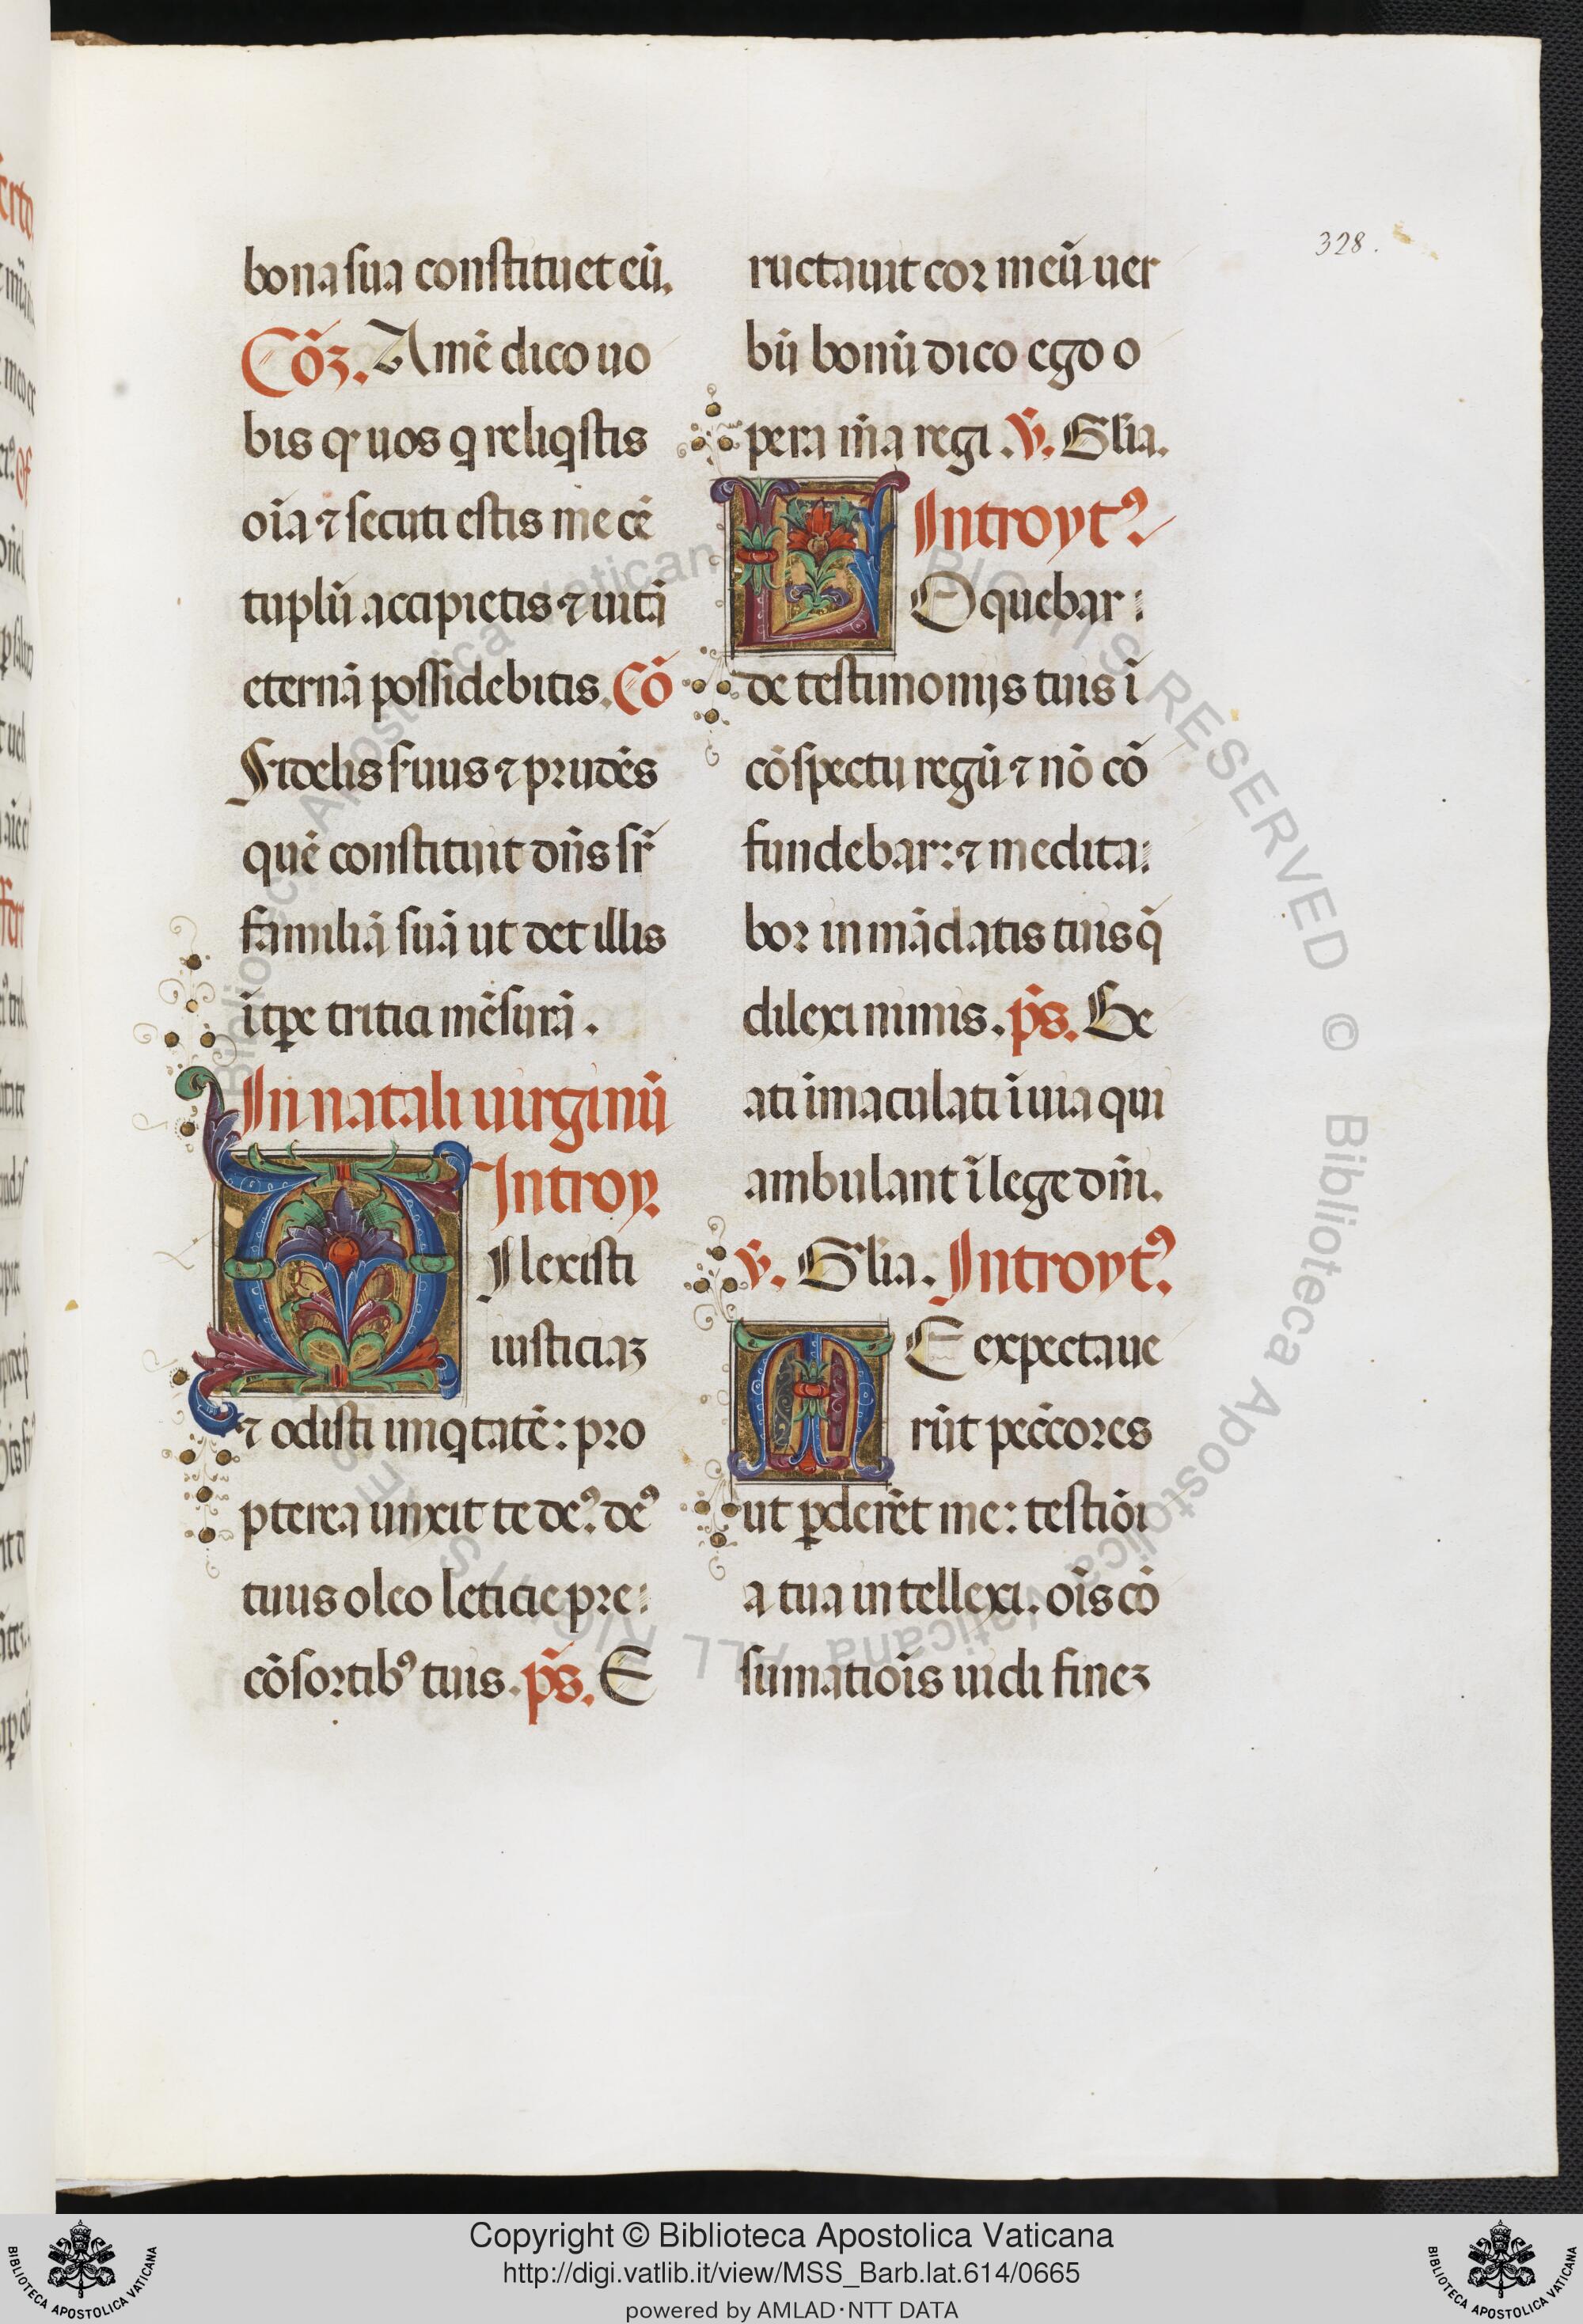 328.
bona sua constituet eū.
Cōꝫ. Amē dico uo
bis ꝙ uos q̇ reliq̇stis
oīa ⁊ secuti estis me cē
tuplū accipietis ⁊ uitā
eternā possidebitis. Cō
Fidelis ẜuus ⁊ prudēs
quē constituit dn̄s sr̄
familiā suā ut det illis
ī tꝑe tritici mēsurā.
In natali uirginū
Introy.
DIlexisti
iusticiaꝫ
⁊ odisti iniq̇tatē: pro
pterea unxit te deꝰ. deꝰ
tuus oleo leticie pre:
cōsortibꝰ tuis. ps̄. E
ructauit cor meū uer
bū bonū dico ego o
pera m̄a regi. ꝟ. Gl̄ia.
Introytꝰ
LOquebar:
de testimonijs tuis ī
cōspectu regū ⁊ nō cō
fundebar: ⁊ medita:
bor in mādatis tuis q̄
dilexi nimis. ps̄. Be
ati īmaculati ī uia qui
ambulant ī lege dn̄i.
ꝟ. Gl̄ia. Introytꝰ.
ME expectaue
rūt pecc̄ores
ut ꝑderēt me: testiōi
a tua intellexi. oīs cō
sumatiōis uidi fineꝫ
Copyright © Biblioteca Apostolica Vaticana
http://digi.vatlib.it/view/MSS_Barb.lat.614/0665
powered by AMLAD·NTT DATA